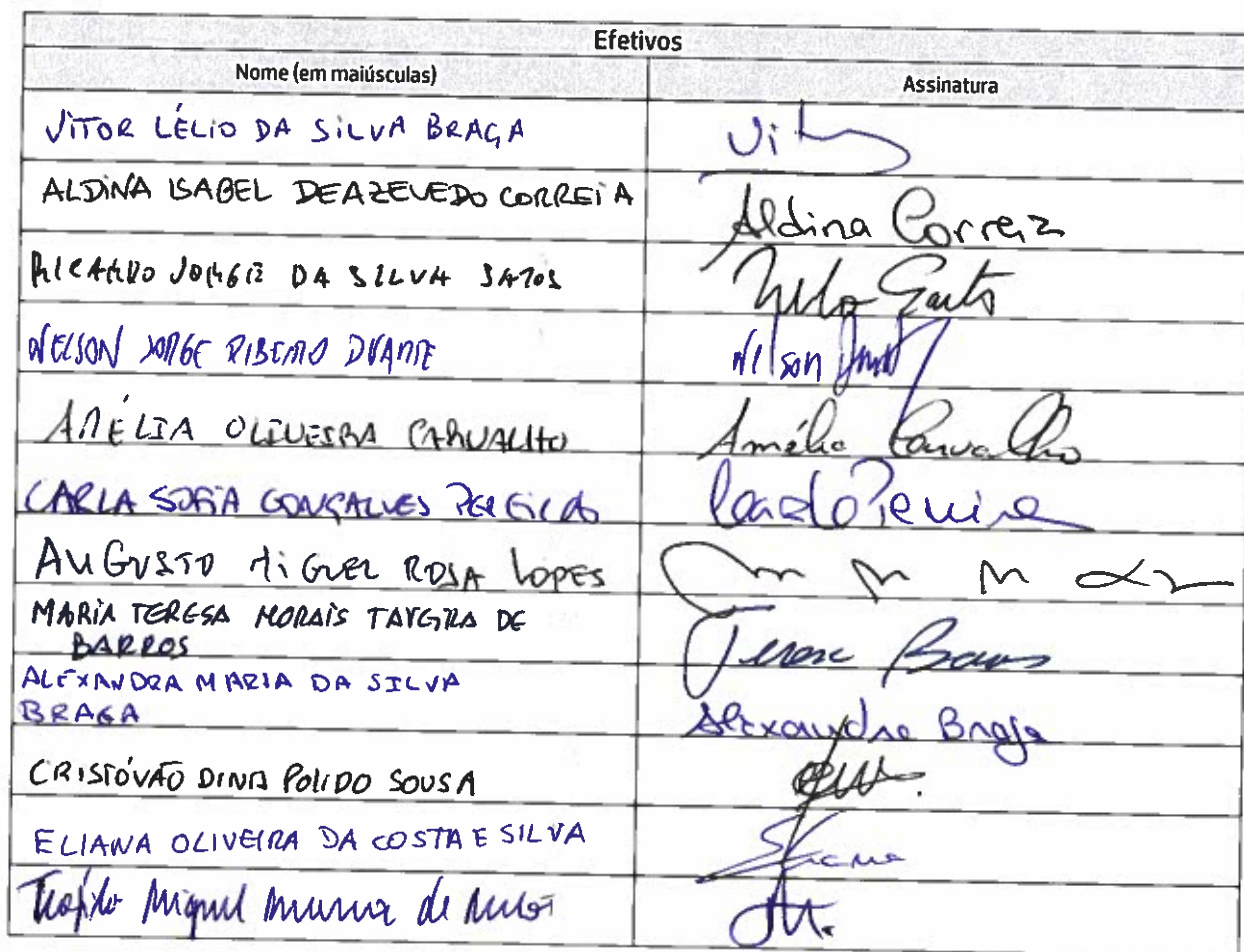 Efetivos
Nome (em maiúsculas) Assinatura
VITOR LÉLIO DA SILVA BRAGA Vit
ALDINA ISABEL DE AZEVEDO CORREIA Aldina Correia
RICARDO JORGE DA SILVA SATOS
NELSON JORGE RIBEIRO DUARTE Nelson
AMÉLIA OLIVEIRA CARVALHO Amélia Carvalho
CARLA SOFIA GONÇALVES PEREIRA Carla Pereira
AUGUSTO MIGUEL ROSA LOPES
MARIA TERESA MORAIS TAVEIRA DE
BARROS Teresa Barros
ALEXANDRA MARIA DA SILVA
BRAGA Alexandra Braga
CRISTÓVÃO DINIS POLIDO SOUSA
ELIANA OLIVEIRA DA COSTA E SILVA Eliana
Miguel de